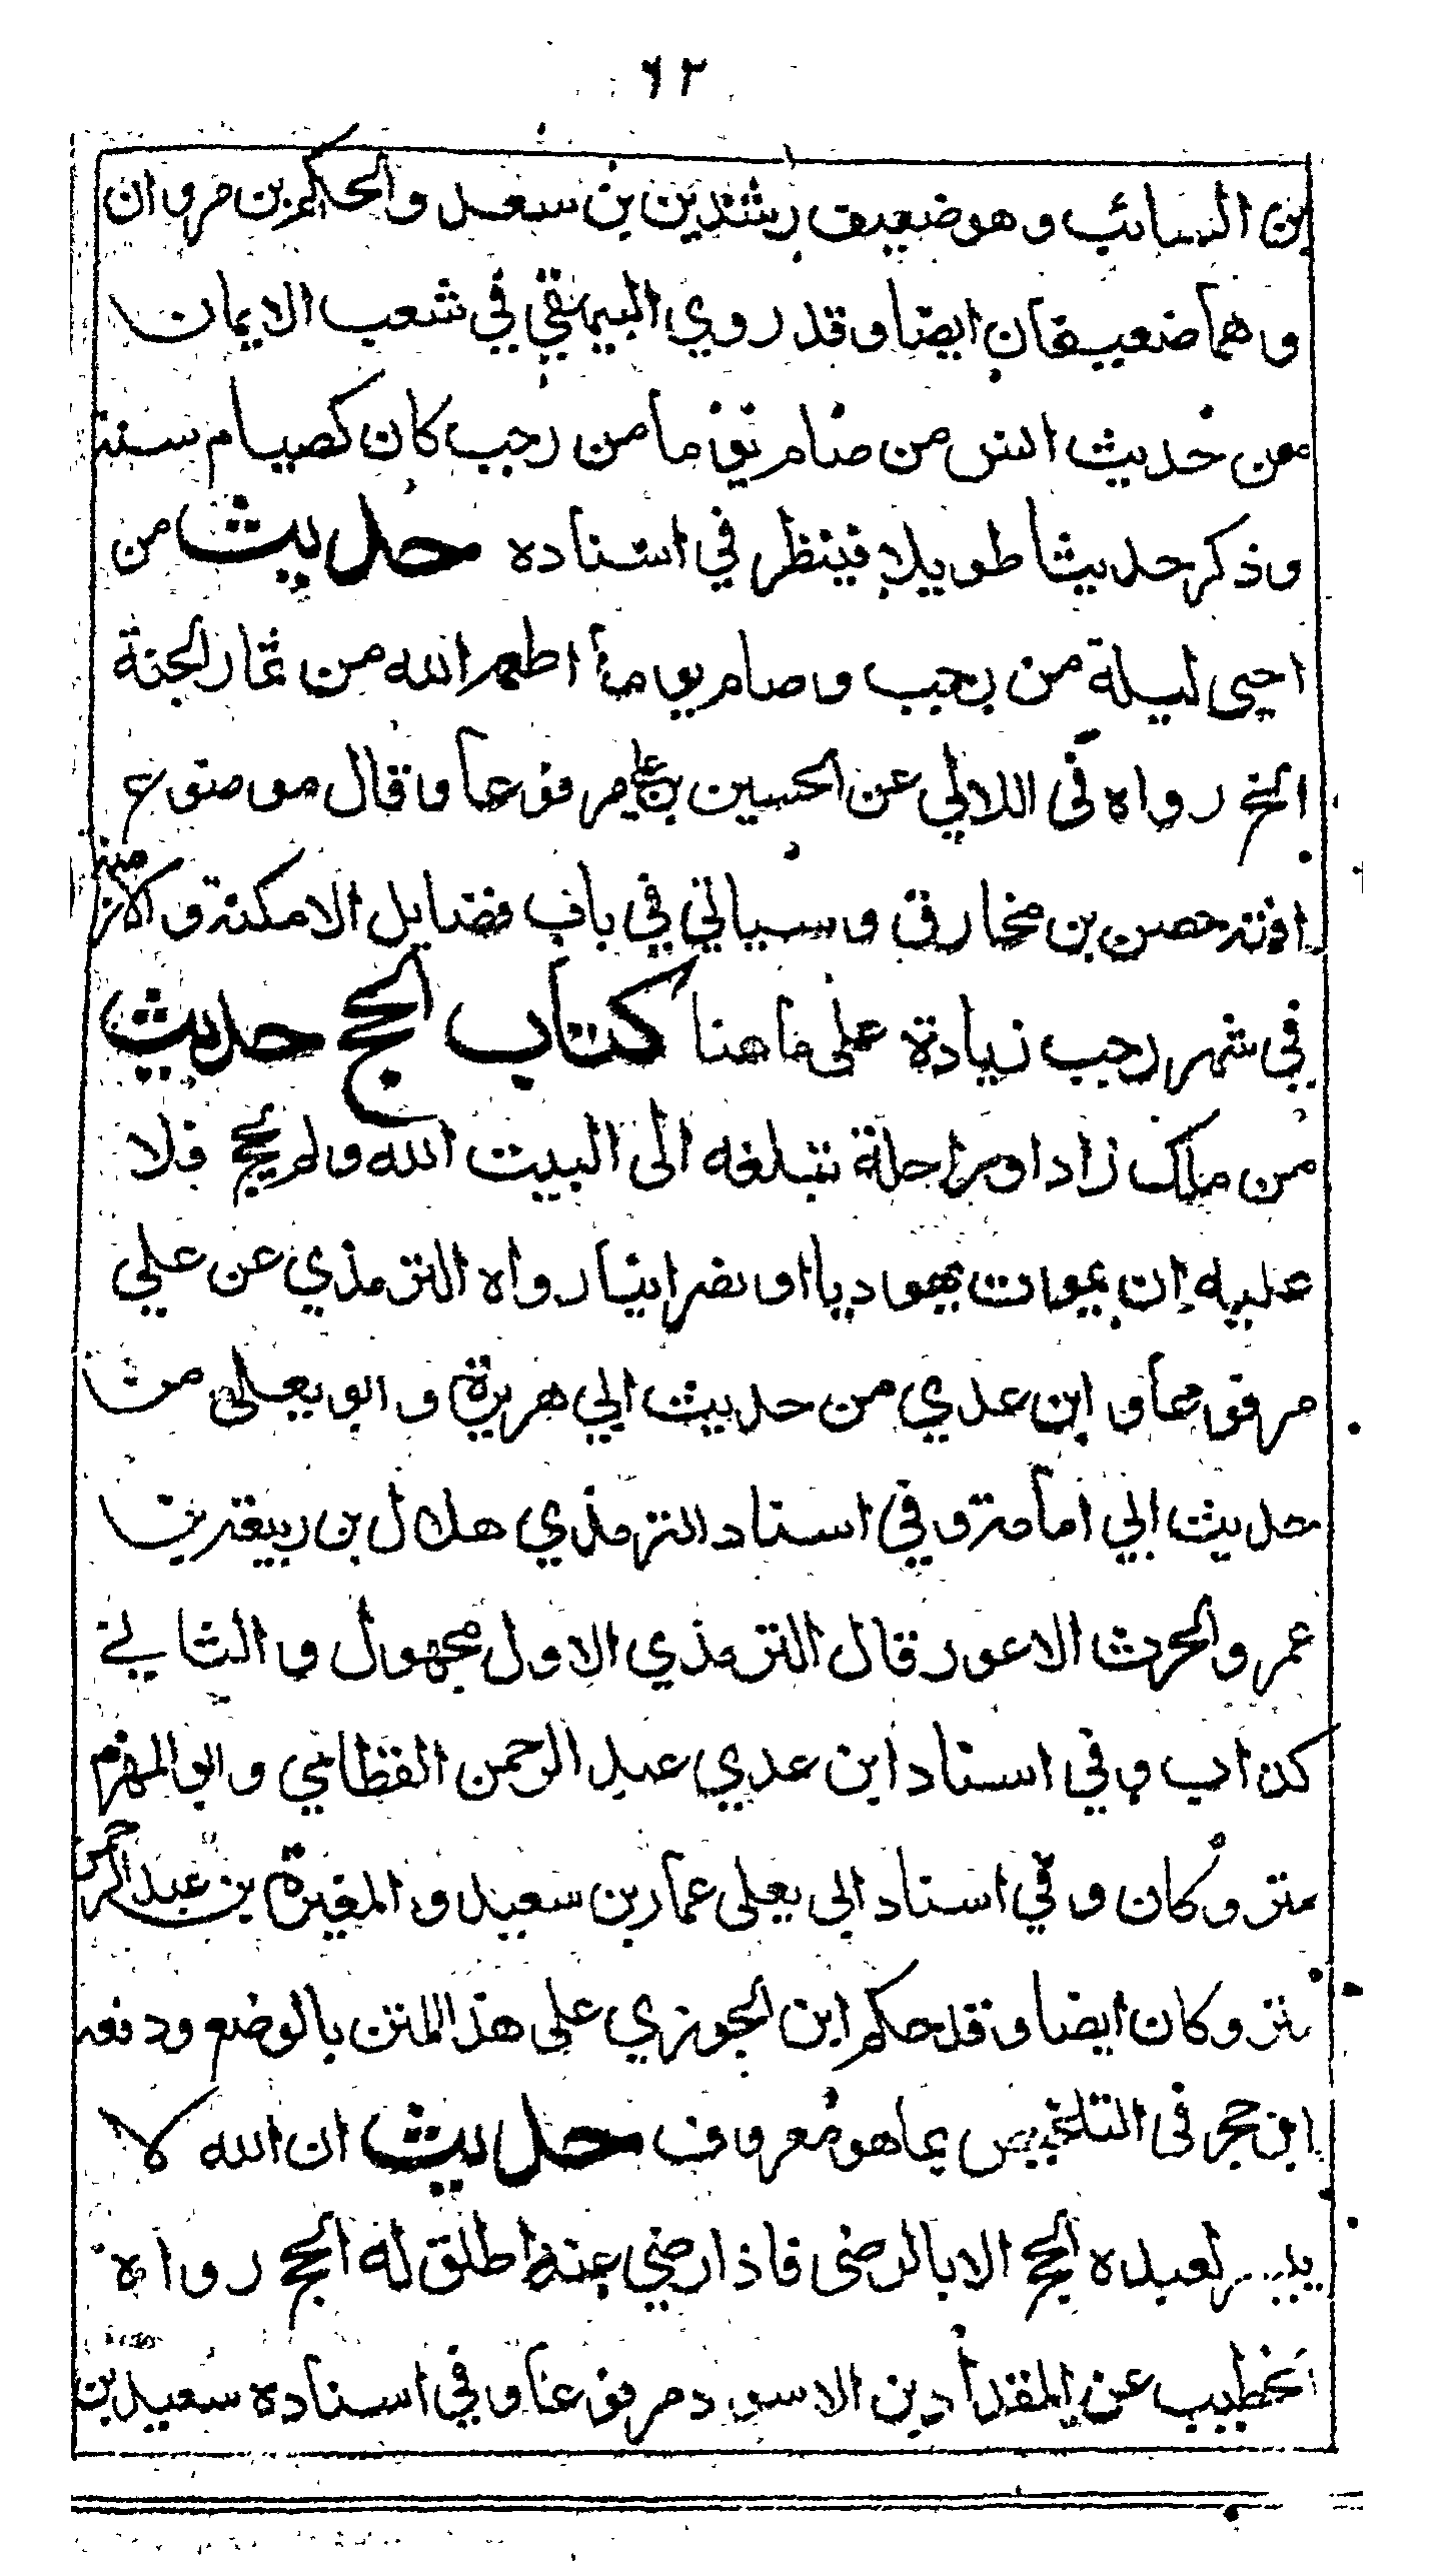 ٦٢
بن السائب وهو ضعيف رشدين بن سعد والحكم بن مروان
وهما ضعيفان ايضا وقد روي البيهقي في شعب الايمان
من حديث انس من صام يوما من رجب كان كصيام سنة
وذكر حديثا طويلا فينظر في اسناده حديث من
احيى ليلة من رجب وصام يوما اطعمه الله من ثمار الجنة
الخ رواه في اللالي عن الحسين بن علي مرفوعا وقال موضوع
افته حصن بن مخارق وسياتي في باب فضايل الامكنة والازمنة
في شهر رجب زيادة على ما هنا كتاب الحج حديث
من ملك زادا وراحلة تبلغه الى البيت الله ولم يحج فلا
عليه ان يموت يهوديا او نصرانيا رواه الترمذي عن علي
مرفوعا وابن عدي من حديث ابي هريرة وابو يعلى من
حديث ابي امامة وفي اسناد الترمذي هلال بن ربيعة بن
عمر والحرث الاعور قال الترمذي الاول مجهول والثاني
كذاب وفي اسناد ابن عدي عبد الرحمن القطامي وابو المهزم
متروكان وفي اسناد ابي يعلى عمار بن سعيد والمغيرة بن عبد الرحمن
متروكان ايضا وقد حكم ابن الجوزي على هذا المتن بالوضع ودفعه
ابن حجر في التلخيص بما هو معروف حديث ان الله لا
لعبده الحج الا بالرضى فاذا رضي عنه اطلق له الحج رواه
الخطيب عن المقداد بن الاسود مرفوعا وفي اسناده سعيد بن